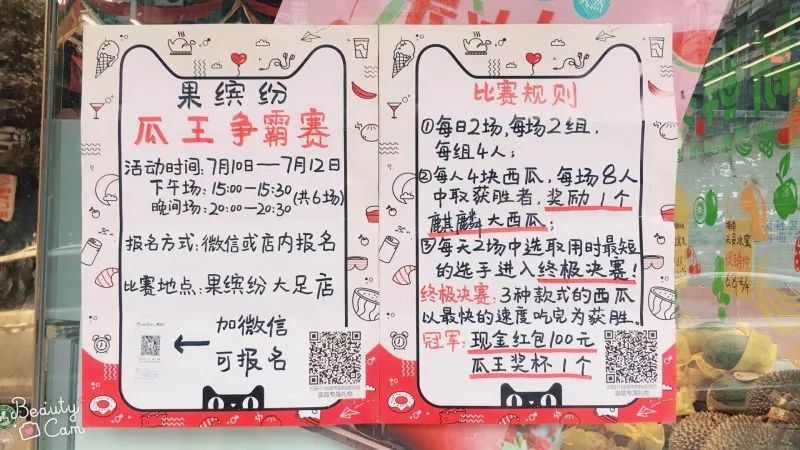 果缤纷
瓜王争霸赛
活动时间:7月10日——7月12日
下午场:15:00—15:30
晚间场:20:00—20:30
(共6场)
报名方式:微信或店内报名
比赛地点:果缤纷大足店
加微信
可报名
比赛规则
①每日2场,每场2组,
每组4人;
②每人4块西瓜,每场8人
中取获胜者,奖励1个
麒麟大西瓜;
③每天2场中选取用时最短
的选手进入终极决赛!
终极决赛:3种款式的西瓜
以最快的速度吃完为获胜。
冠军:现金红包100元
瓜王奖杯1个
Beauty
Cam